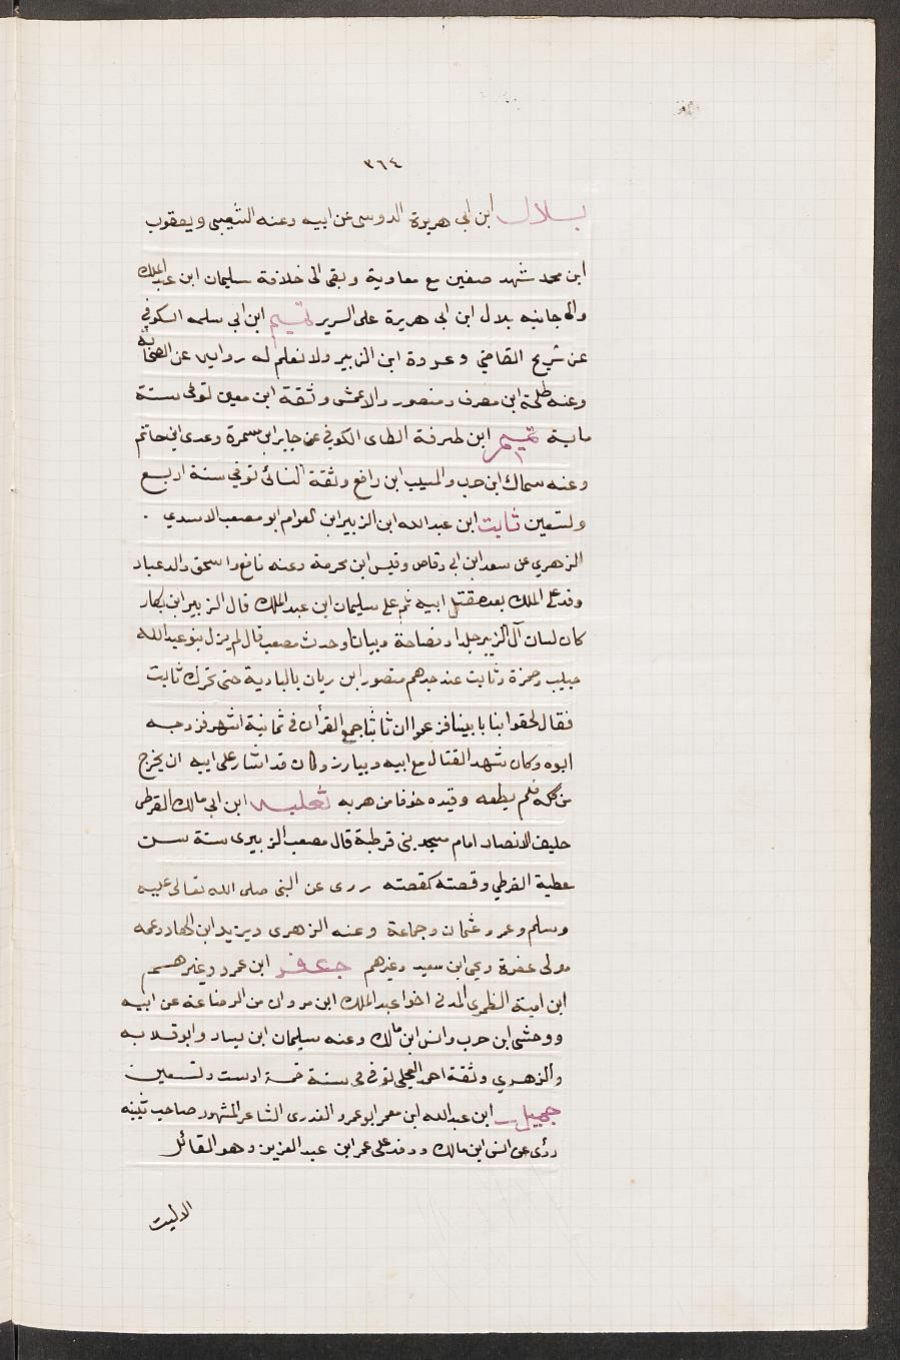 ٣٦٤
بلال ابن ابى هريرة الدوسى عن ابيه وعنه الشعبى ويعقوب
ابن محمد شهد صفين مع معاوية وبقى الى خلافة سليمان ابن عبد الملك
والى جانبه بلال ابن ابى هريرة على السرير تميم ابن ابى سلمه الكوفي
عن شريح القاضي وعروة ابن الزبير ولا نعلم له رواية عن الصحابة
وعنه طلحة ابن مصرف ومنصور والاعمش وثقة ابن معين توفى سنة
ماية تميم ابن طرفة الطاى الكوفي عن جابر ابن سمرة وعدى ابن حاتم
وعنه سماك ابن حرب والمسيب ابن رافع وثقة النسائى توفي سنة اربع
وتسعين ثابت ابن عبد الله ابن الزبير ابن العوام ابو مصعب الاسدي .
الزهري عن سعد ابن ابى وقاص وقيس ابن مخرمة وعنه نافع واسحق والد عباد
وفد على الملك بعد مقتل ابيه ثم على سليمان ابن عبد الملك قال الزبير ابن بكار
كان لسان آل الزبير جلدا وفصاحة وبيانا وحدث مصعب قال لم يزل بنو عبد الله
حبيب وحمزة وثابت عند جدهم منصور ابن ريان بالبادية حتى تحرك ثابت
فقال لحقوا بنا بابينا فزعموا ان ثابتا جمع القرأن في ثمانية اشهر فزوجه
ابوه وكان شهد القتال مع ابيه ويبارز وكان قد اشار على ابيه ان يخرج
من مكه فلم يطعه وقيده خوفا من هربه ثعلبه ابن ابى مالك القرظى
حليف الانصار امام مسجد بنى قرظة قال مصعب الزبيرى سنة سن
عطية القرظي وقصته كقصته روى عن النبى صلى الله تعالى عليه
وسلم وعمر وعثمان وجماعة وعنه الزهرى ويزيد ابن الهاد وعمه
مولى عفرة ويحى ابن سعيد وغيرهم جعفر ابن عمرو وغيرهم
ابن امية الظمرى المدنى اخو عبد الملك ابن مروان من الرضاعة عن ابيه
ووحشى ابن حرب وانس ابن مالك وعنه سليمان ابن يسار وابو قلابه
والزهرى وثقة احمد العجلى توفى فى سنة خمسة او ست وتسعين
جميل ابن عبد الله ابن معمر ابو عمرو العذرى الشاعر المشهور صاحب بثينه
روى عن انس ابن مالك ووفد على عمر ابن عبد العزيز وهو القائل
الا ليت